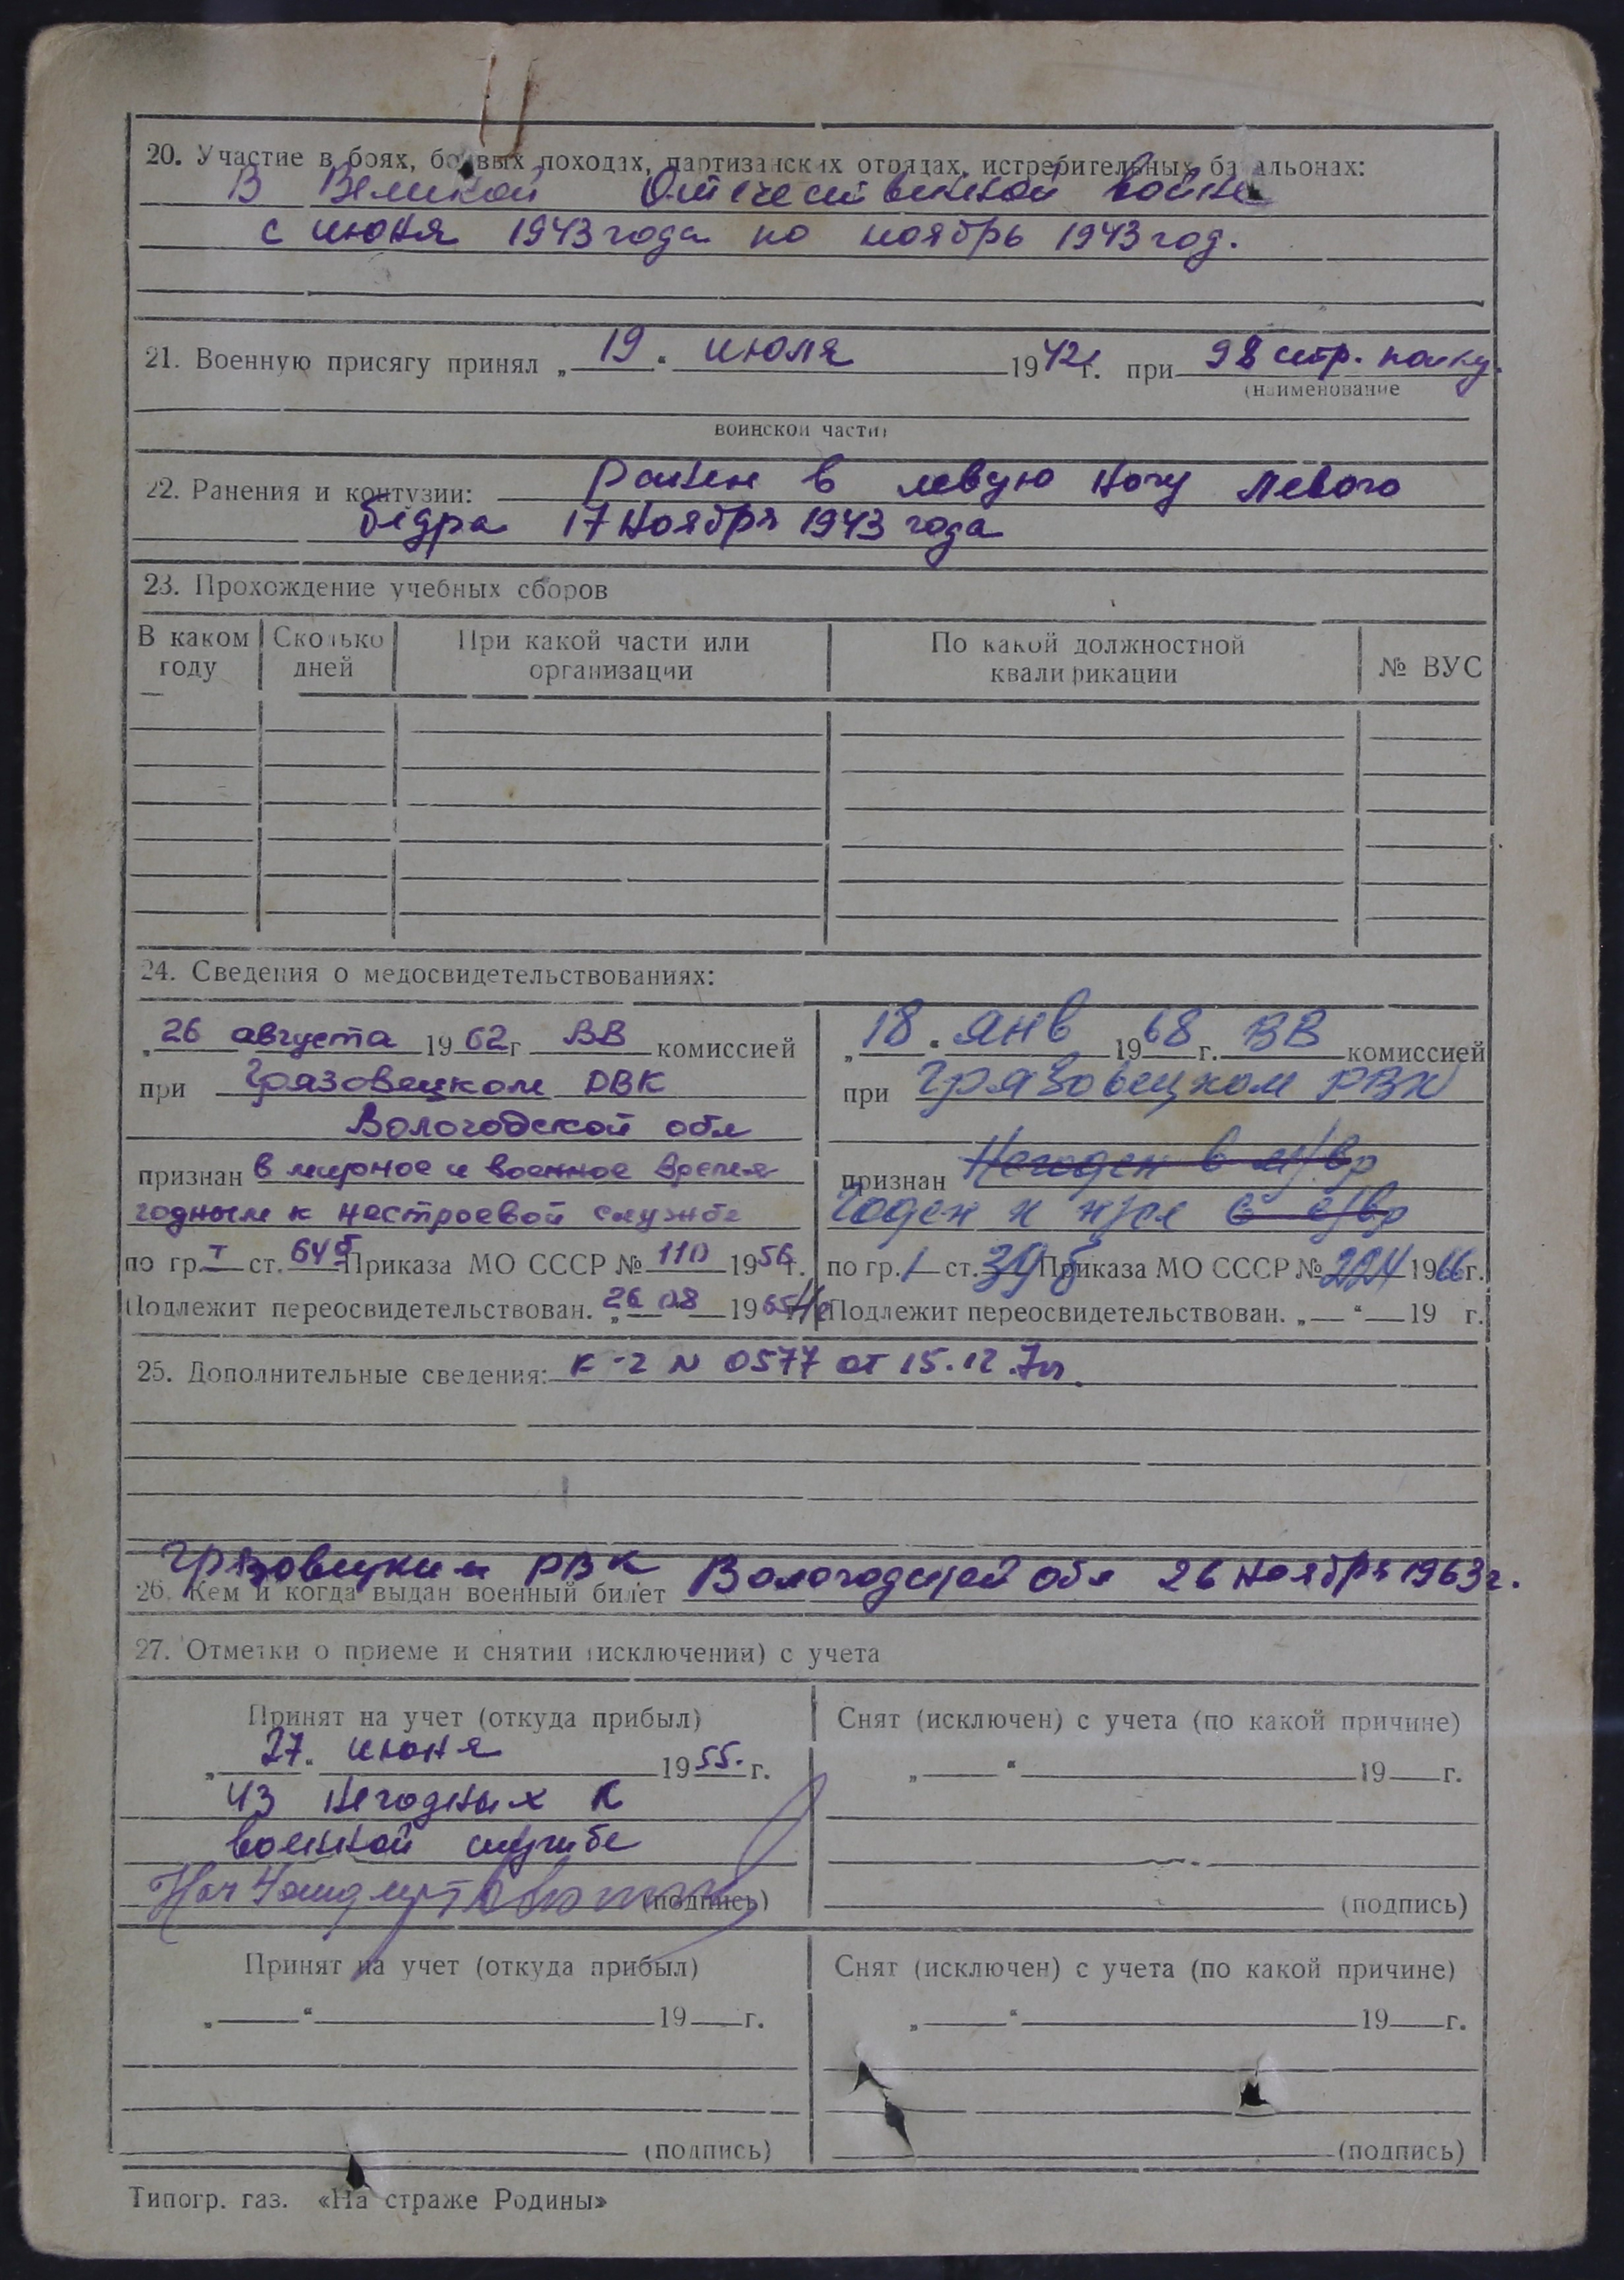 20. Участие в боях, боевых походах, партизанских отрядах, истребительных батальонах:
В Великой Отечественной войне
с июня 1943 года по ноябрь 1943 год.
21. Военную присягу принял „19" июля 1942 г. при 98 стр. полку.
(наименование
воинской части)
22. Ранения и контузии: Ранен в левую ногу левого
бедра 17 ноября 1943 года
23. Прохождение учебных сборов
В каком году
Сколько дней
При какой части или организации
По какой должностной квалификации
№ ВУС
24. Сведения о медосвидетельствованиях:
„26 августа 1962 г ВВ комиссией
при Грязовецком РВК
Вологодской обл
признан в мирное и военное время
годным к нестроевой службе
по гр. I ст. 64б Приказа МО СССР № 110 1956 г.
Подлежит переосвидетельствован. „26 08 1965
„18" янв 1968 г. ВВ комиссией
при Грязовецком РВК
признан Негоден в м/вр
Годен к н/сл в в/вр
по гр. I ст. 39б Приказа МО СССР № 224 1966 г.
Не Подлежит переосвидетельствован. „ " 19 г.
25. Дополнительные сведения: к-2 № 0577 от 15.12.
Грязовецким РВК Вологодской обл 26 ноября 1963 г.
26. Кем и когда выдан военный билет
27. Отметки о приеме и снятии (исключении) с учета
Принят на учет (откуда прибыл)
„27" июня 1955 г.
из негодных к
военной службе
Нач (подпись)
Снят (исключен) с учета (по какой причине)
„ " 19 г.
(подпись)
Принят на учет (откуда прибыл)
„ " 19 г.
(подпись)
Снят (исключен) с учета (по какой причине)
„ " 19 г.
(подпись)
Типогр. газ. «На страже Родины»